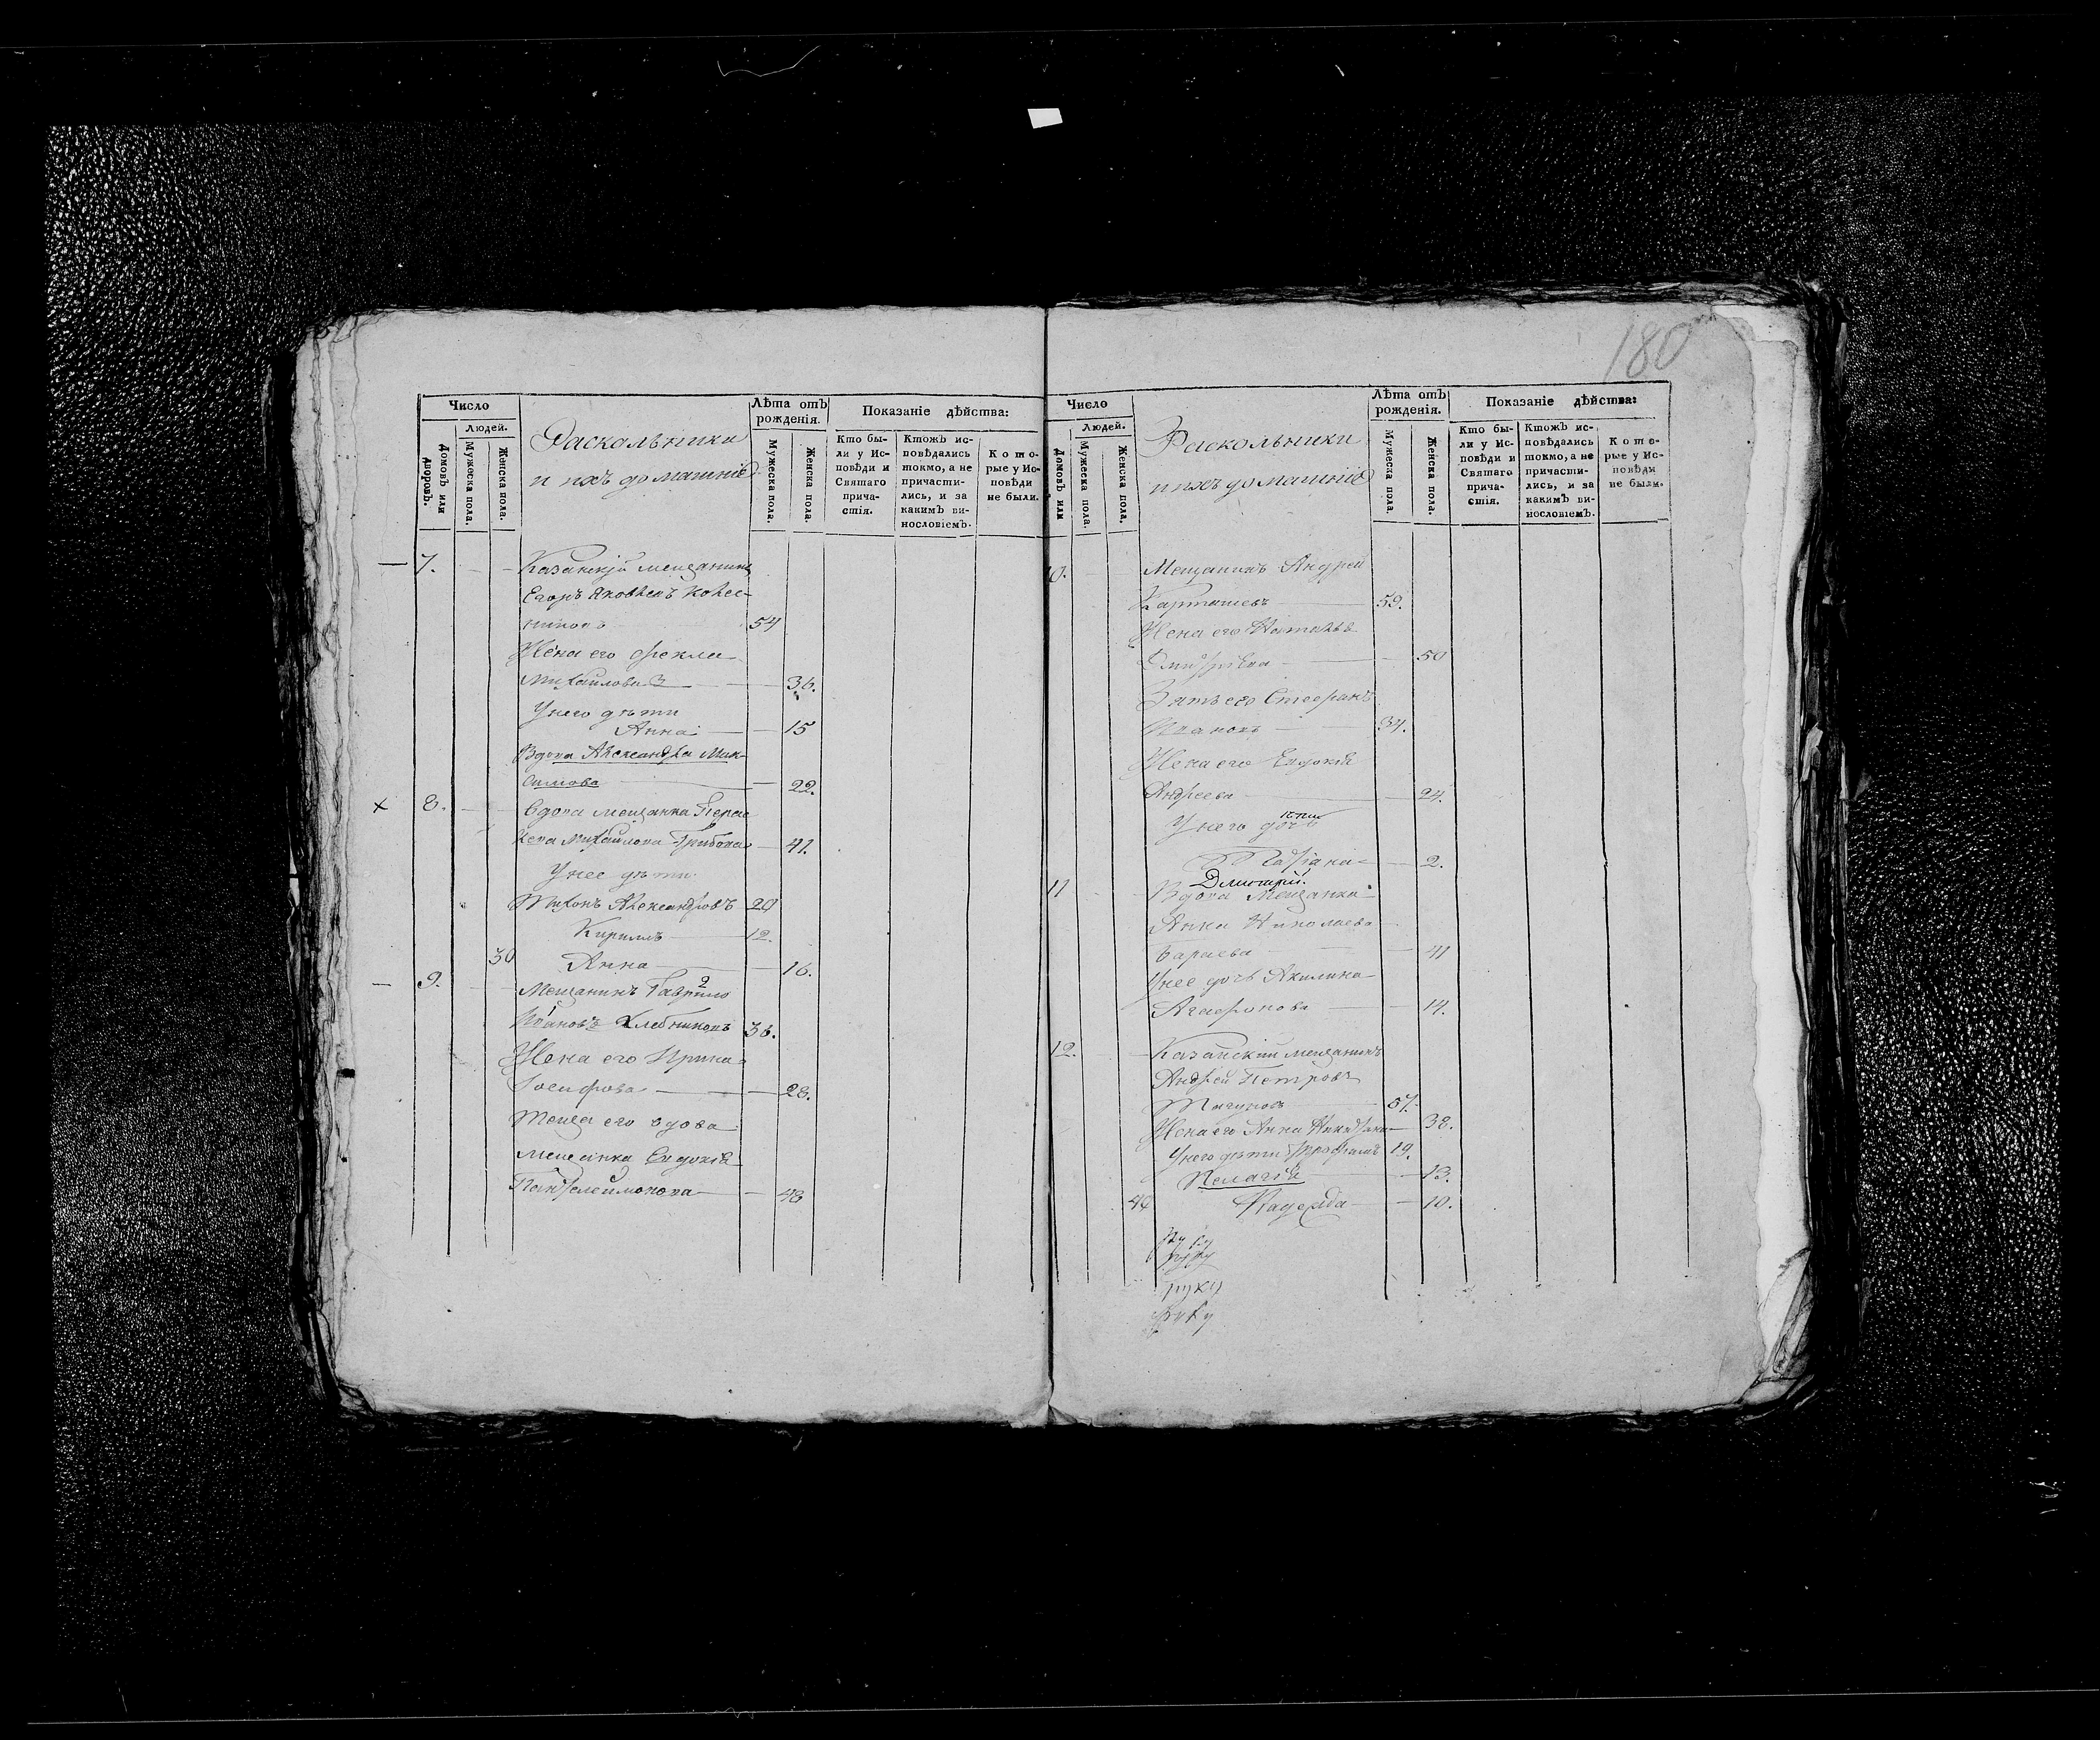 180
Число
Людей.
Домовъ или дворовъ.
Мужеска пола.
Женска пола.
Раскольники
и ихъ домашніе
Лѣта отъ рожденія.
Мужеска пола.
Женска пола.
Показаніе дѣйства:
Кто бы-
ли у Ис-
повѣди и
Святаго
прича-
стія.
Ктожъ ис-
повѣдались
токмо, а не
причасти-
лись, и за
какимъ ви-
нословіемъ.
Кото-
рые у Ис-
повѣди
не были.
7. Казанскій мещанинъ
Егоръ Яковлевъ Колес-
никовъ 54
Жена его Фекла
Михайлова 3 36.
У него дѣти
Анна 15
Вдова Александра Мак-
симова 22.
× 8. Вдова мещанка Парас-
кева Михайлова Грибова 41.
У нее дѣти
Тихонъ Александровъ 20
Кириллъ 12.
30 Анна 16.
9. Мещанинъ Гаврило 2
Ивановъ Хлебниковъ 36.
Жена его Ирина
Іосифова 28.
Теща его вдова
мещанка Евдокія
Пантелеймонова 48
Число
Людей.
Домовъ или
Мужеска пола.
Женска пола.
Раскольники
и ихъ домашніе
Лѣта отъ
рожденія.
Мужеска пола.
Женска пола.
Показаніе дѣйства:
Кто бы-
ли у Ис-
повѣди и
Святаго
прича-
стія.
Ктожъ ис-
повѣдались
токмо, а не
причасти-
лись, и за
какимъ ви-
нословіемъ.
Кото-
рые у Ис-
повѣди
не были.
10. Мещанинъ Андрей
Карташевъ 59.
Жена его Наталья
Дмитріева 50
Зять его Стефанъ
Ивановъ 34.
Жена его Евдокія
Андреева 24.
У него дѣти
Татіана 2.
Дмитрій.
11 Вдова Мещанка
Анна Николаева
Бараева 41
У нее дочь Акилина
Агафонова 14.
12. Казанскій мещанинъ
Андрей Петровъ
57.
Жена его Анна 38.
У него дѣти 19.
Пелагія 13.
44 Надежда 10.
руку